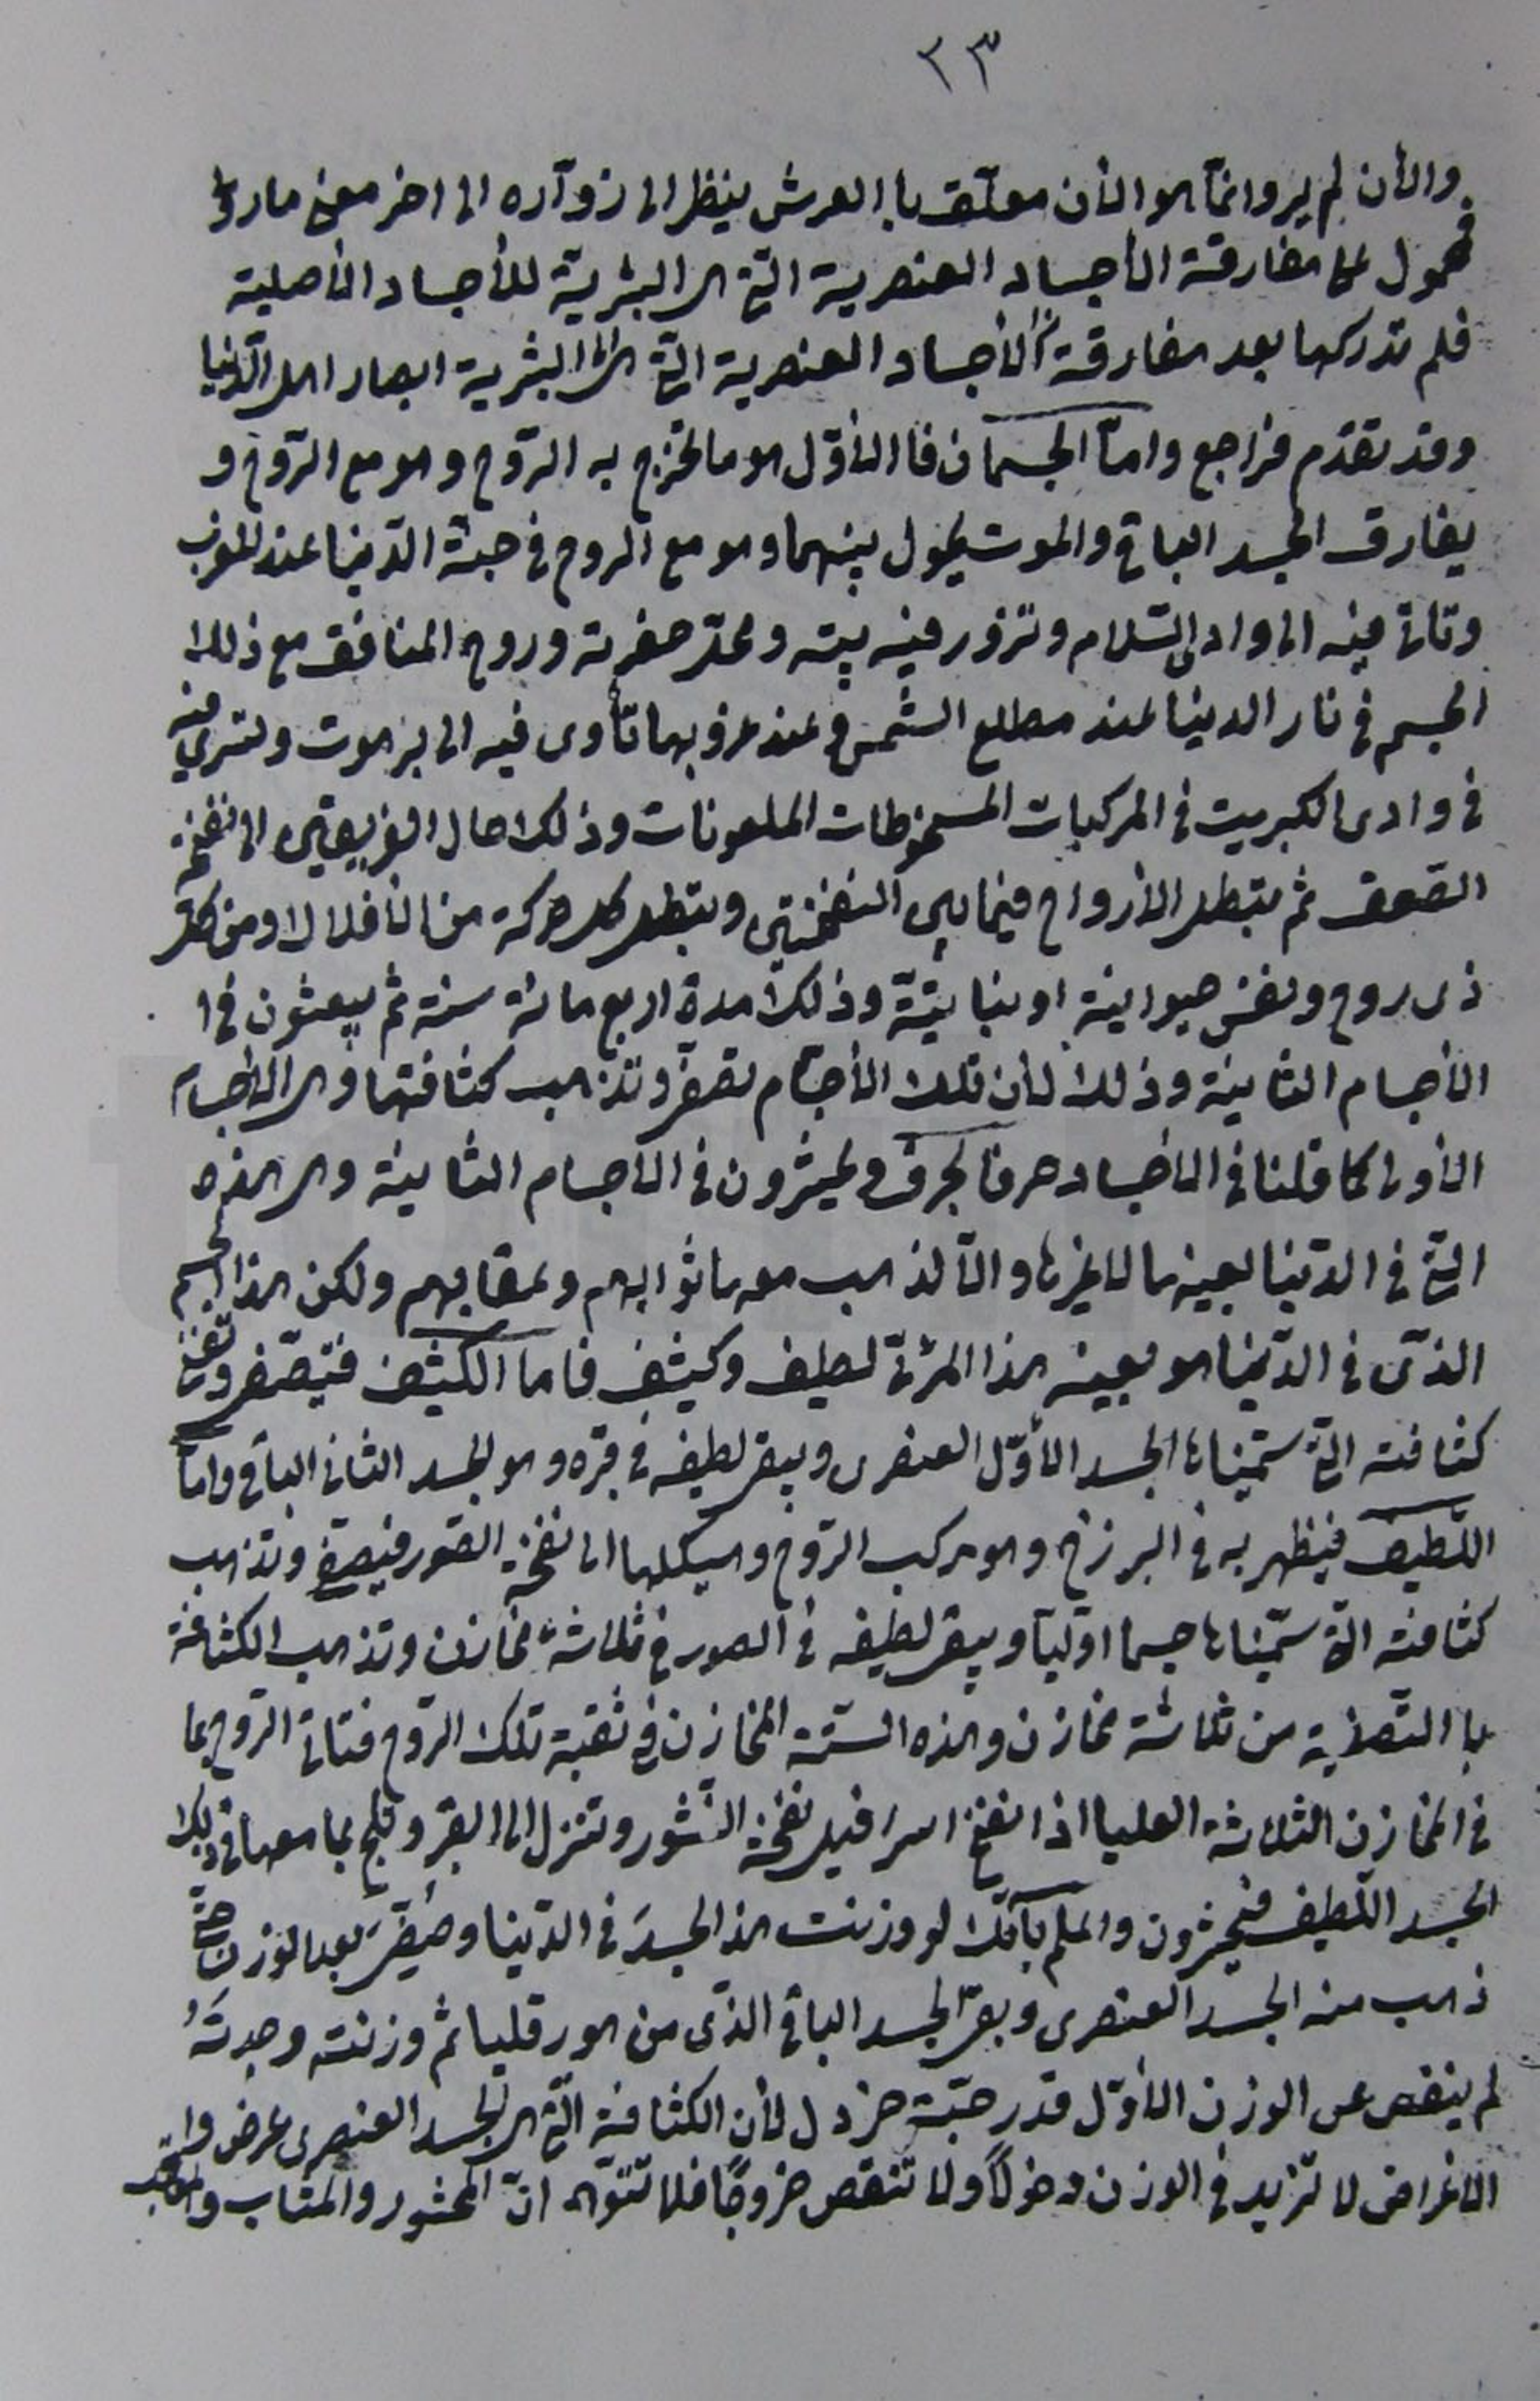 ٢٣
والان لم يروا انما هو الان معلّق با العرش ينظر الى زوّاره الى اخر معنى ما روى
فمحمول على مفارقة الأجساد العنصرية التى هى البشريّة للأجساد الأصلية
فلم تدركها بعد مفارقة الأجساد العنصرية التى هى البشرية ابصار اهل الدّنيا
وقد تقدّم فراجع وامّا الجسمان فا الأوّل هو ما تخرج به الرّوح وهو مع الرّوح و
يفارق الجسد الباقى والموت يحول بينهما وهو مع الروح فى جنّة الدّنيا عند المغرب
وتاتى فيه الى وادى السّلام وتزور فيه بيته ومحلّ حفرته وروح المنافق مع ذلك
الجسم فى نار الدنيا عند مطلع الشّمس وعند غروبها تأوى فيه الى برهوت وتسرى فيه
فى وادى الكبريت فى المركبات المسخوطات الملعونات وذلك حال الفريقين الى نفخة
الصّعق ثم تبطل الأرواح فيما بين النفختين وتبطل كل حركة من الأفلاك ومن كل
ذى روح ونفس حيوانية او نباتيّة وذلك مدة اربع مائة سنة ثم يبعثون فى ا
الأجسام الثانية وذلك لأن تلك الأجسام تصفى وتذهب كثافتها وهى الأجسام
الأولى كما قلنا فى الأجساد حرفا بحرف ويحشرون فى الأجسام الثانية وهى هذه
التّى فى الدّنيا بعينها لا غيرها والّا لذهب معها ثوابهم وعقابهم ولكن هذا الجسم
الذّى فى الدّنيا هو بعينه هذا المرئىّ لطيف وكثيف فاما الكثيف فتيصّفى وتفنى
كثافته التى سمّيناها الجسد الأوّل العنصرى ويبقى لطيفه فى قبره وهو الجسد الثانى الباقى وامّا
اللّطيف فيظهر به فى البرزخ وهو مركب الرّوح وهيكلها الى نفخة الصّور فيصفى وتذهب
كثافته التى سمّيناها جسما اوّليّا ويبقى لطيفه فى الصور فى ثلاثة مخازن وتذهب الكثافة
با التصفية من ثلاثة مخازن وهذه السّتّة المخازن فى ثقبة تلك الرّوح فتاتى الرّوح بما
فى المخازن الثلاثة العليا اذا نفخ اسرافيل نفخة النّشور وتنزل الى القبر وتلج بما معها فى ذلك
الجسد اللّطيف فيحشرون واعلم بأنّك لو وزنت هذا الجسدَ فى الدّنيا وصُفّىَ بعد الوزن حتّى
ذهب منه الجسد العنصرى وبقى الجسد الباقى الذّى من هورقليا ثم وزنته وجدتَهُ
لم ينقص عن الوزن الأوّل قدر حبّة خردل لأن الكثافة التّى هى الجسد العنصرى عرض و
الأعراض لا تزيد فى الوزن دخولًا ولا تنقص خروجًا فلا تتوهّم انّ المحشور والمثاب والمعاقب